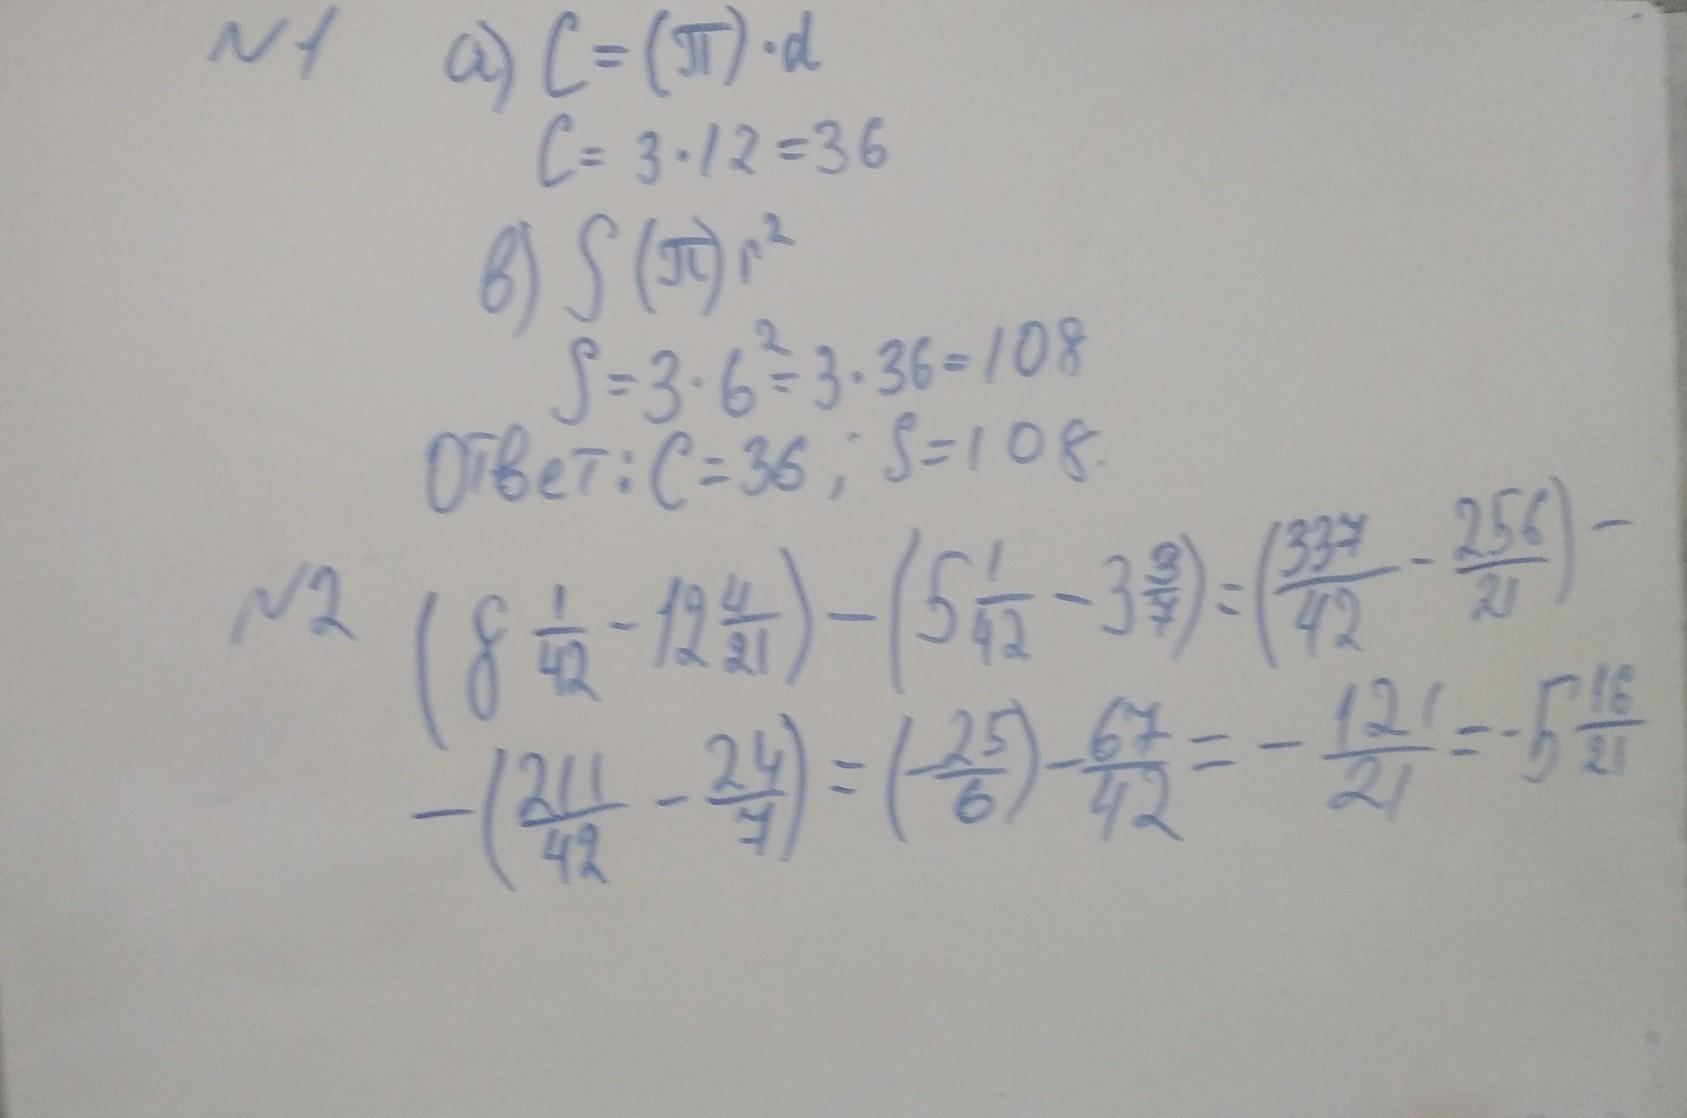 №1 а) C = (π) · d
C = 3 · 12 = 36
в) S (π) r²
S = 3 · 6² = 3 · 36 = 108
Ответ: C = 36 ; S = 108.
№2 (8 1/42 - 12 4/21) - (5 1/42 - 3 3/7) = (337/42 - 256/21) -
- (211/42 - 24/7) = (-25/6) - 67/42 = - 121/21 = -5 16/21